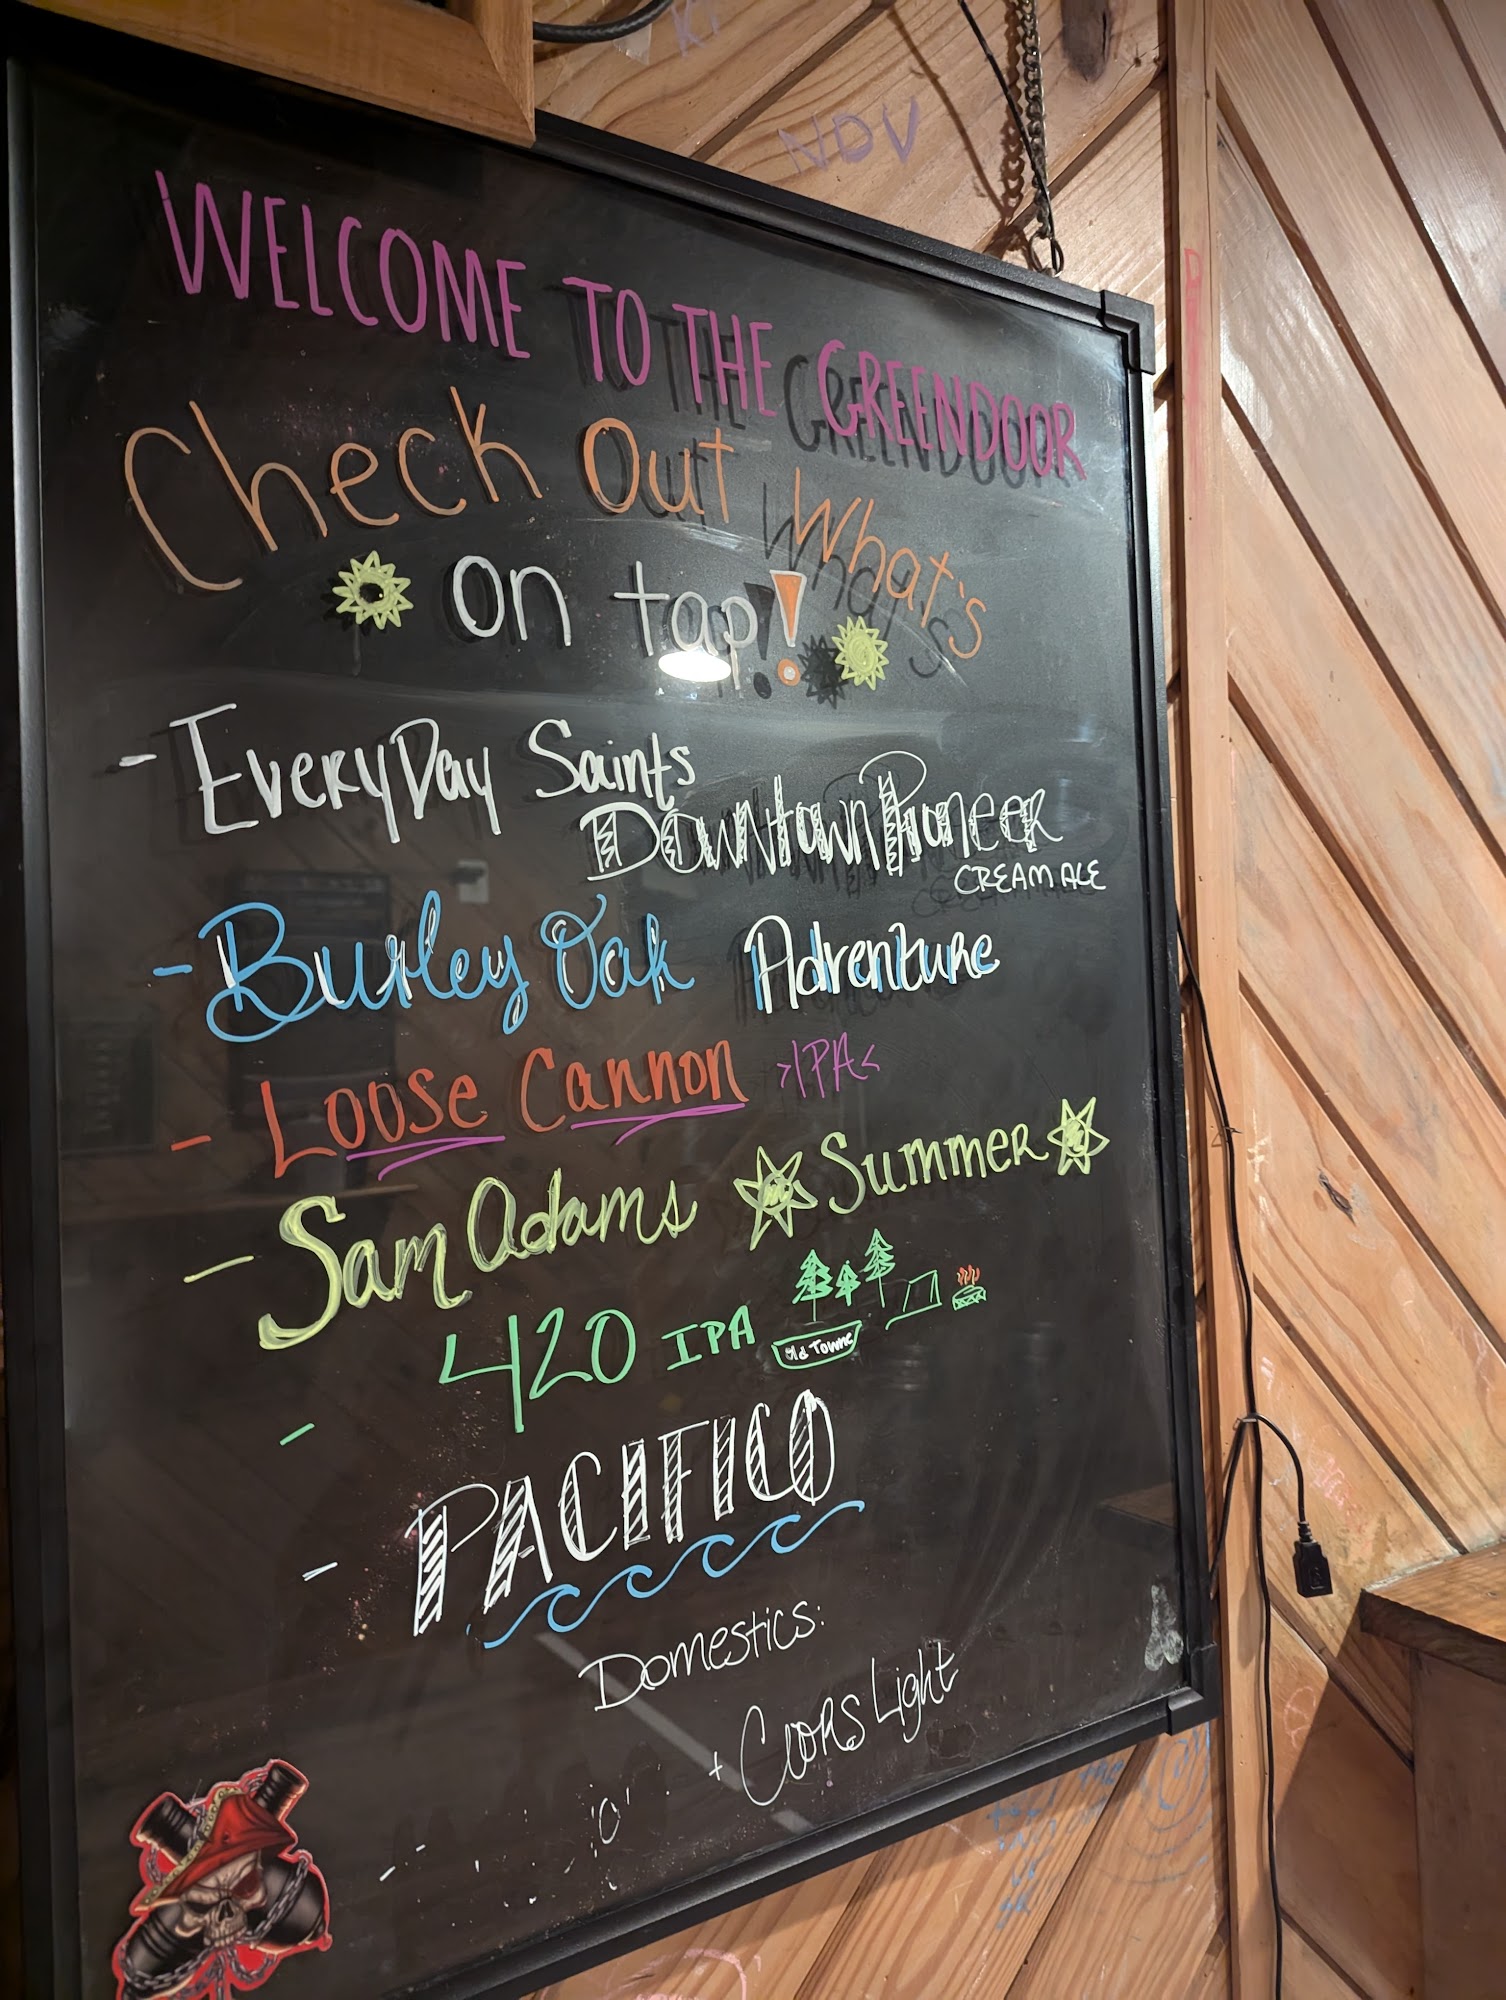 NDV
WELCOME TO THE GREENDOOR
Check Out What's
on tap!
- EveryDay Saints
Downtown Pioneer
CREAM ALE
- Burley Oak Adventure
- Loose Cannon >IPA<
- Sam Adams Summer
- 420 IPA Old Towne
- PACIFICO
Domestics:
+ Coors Light